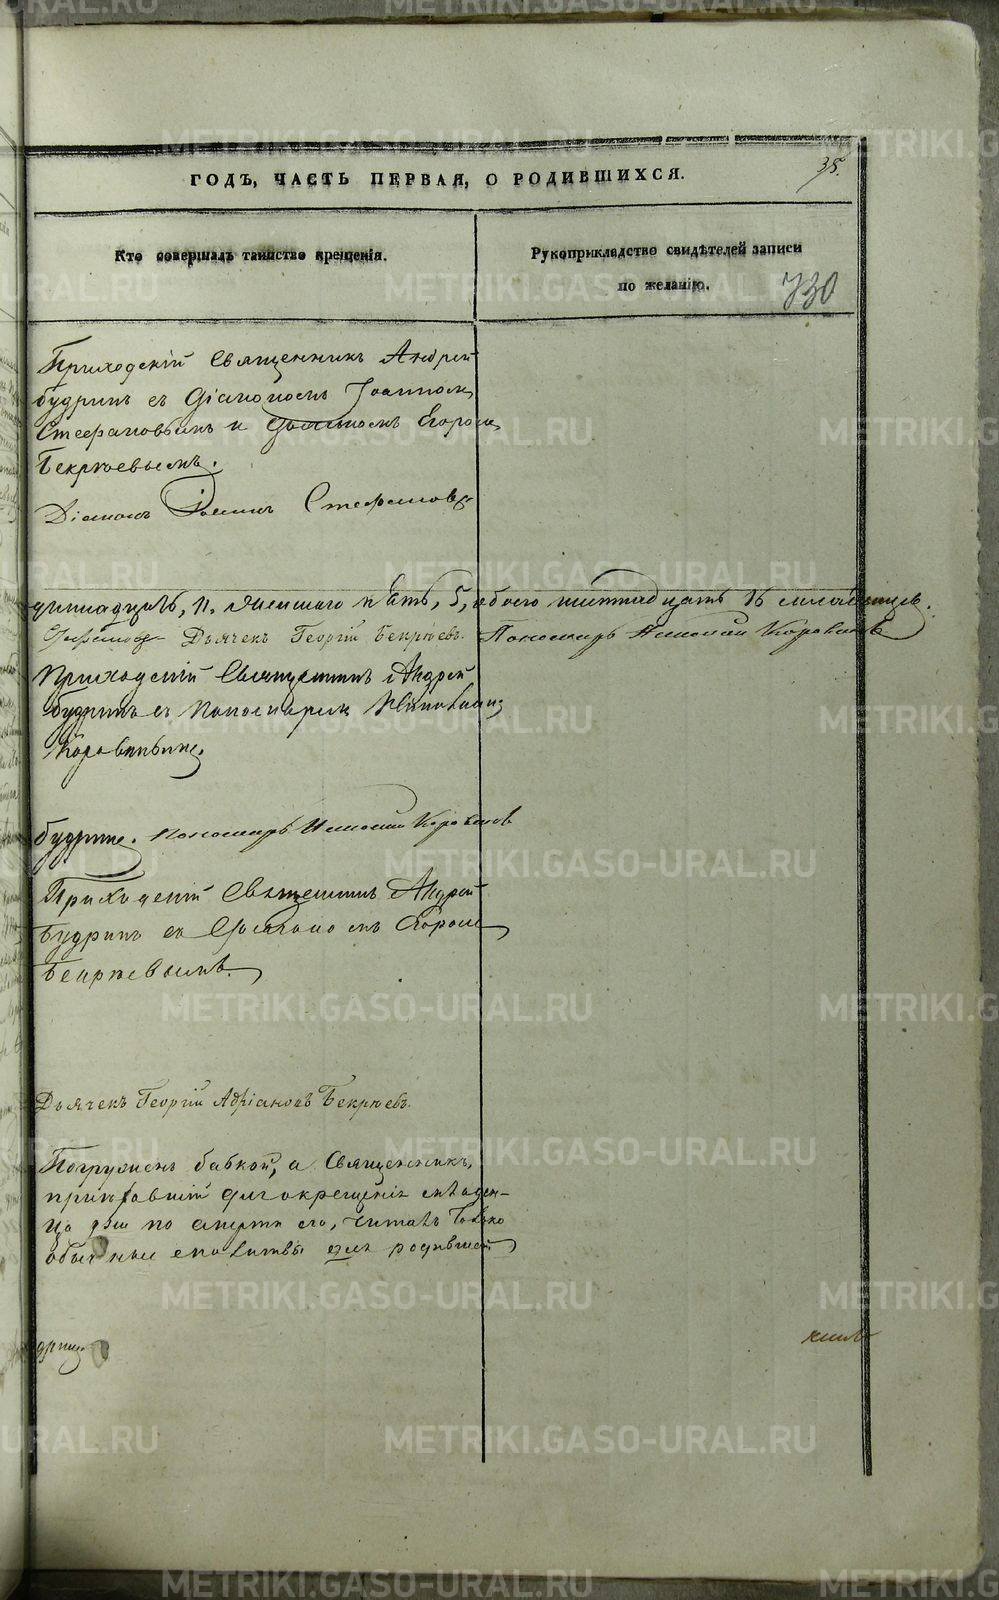 35.
ГОДЪ, ЧАСТЬ ПЕРВАЯ, О РОДИВШИХСЯ.
Кто совершалъ таинство крещенія.
Рукоприкладство свидѣтелей записи
по желанію.
730
Приходскій Священникъ Андрей
Будринъ съ Діакономъ Іоанномъ
Стефановымъ и Дьячкомъ Егоромъ
Бекрюевымъ.
Діаконъ Іоаннъ Стефановъ
11. женскаго пять, 5, обоего шестнадцать 16 младенцевъ.
Дьячекъ Георгій Бекрюевъ. Пономарь Коровинъ
Приходскій Священникъ Андрей
Будринъ съ Пономаремъ
Коровинымъ.
Будринъ. Пономарь Коровинъ
Приходскій Священникъ Андрей
Будринъ съ Дьячкомъ Егоромъ
Бекрюевымъ.
Дьячекъ Георгій Адріановъ Бекрюевъ.
Погруженъ бабкой, а Священникъ,
младен-
ца уже по смерти его, читалъ только
молитвы для родившей
METRIKI.GASO-URAL.RU